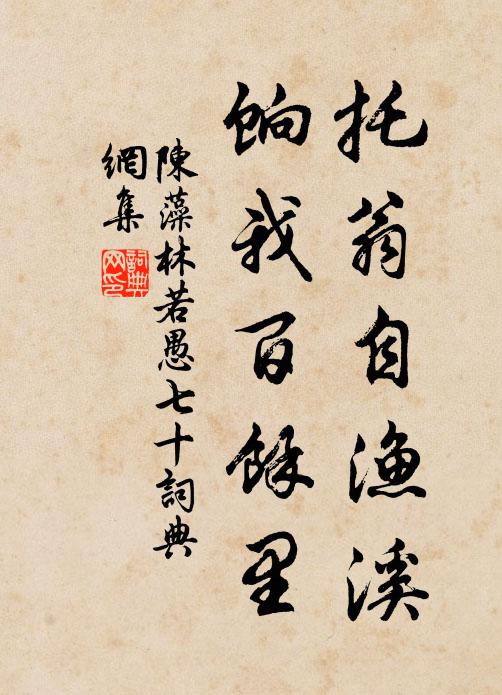 托翁自漁溪
餉我百餘里
陳藻林若愚七十詞典
網集
詞典
网印